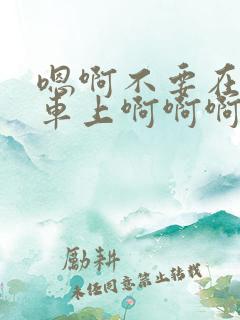 嗯啊不要在
車上啊啊啊
勵耕
未经同意禁止转载